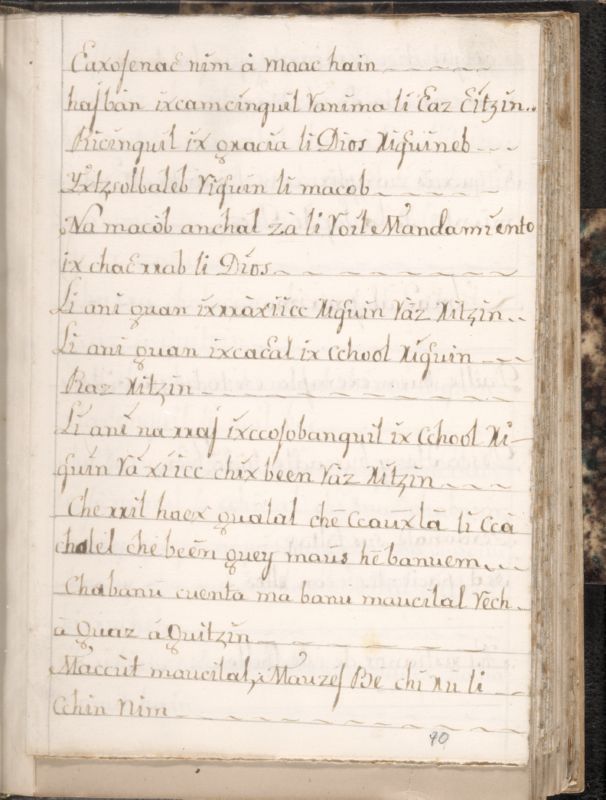 Eaxosenaɛ nim à maac hain
hasbàn ixcamcinquil vanima li Eaz Eitzin..
Ricinquil ix gracia li Dios xiguineb
Yxtzolbaleb viguin li macob
Na macòb anchal zà li voil Mandamiento
ix chaɛ rrab li Dios
Li ani quan ixrràxiicc xiguin vàz xitzin
Li ani quan ixcaɛal ix cchool xiguin
Raz xitzin
Li ani na rraj ixccosobanquil ix cchool xi-
guin và xiicc chix been vàz xitzin
Che rril haex qualal chè ccauxlà li ccà
chalel chè beèn quey maus hè banuem
Chabanù cuenta ma banu maucilal vech
à Quaz à Quitzin
Maccut maucilal, Mauzes Be chi xu li
cchin nim
90